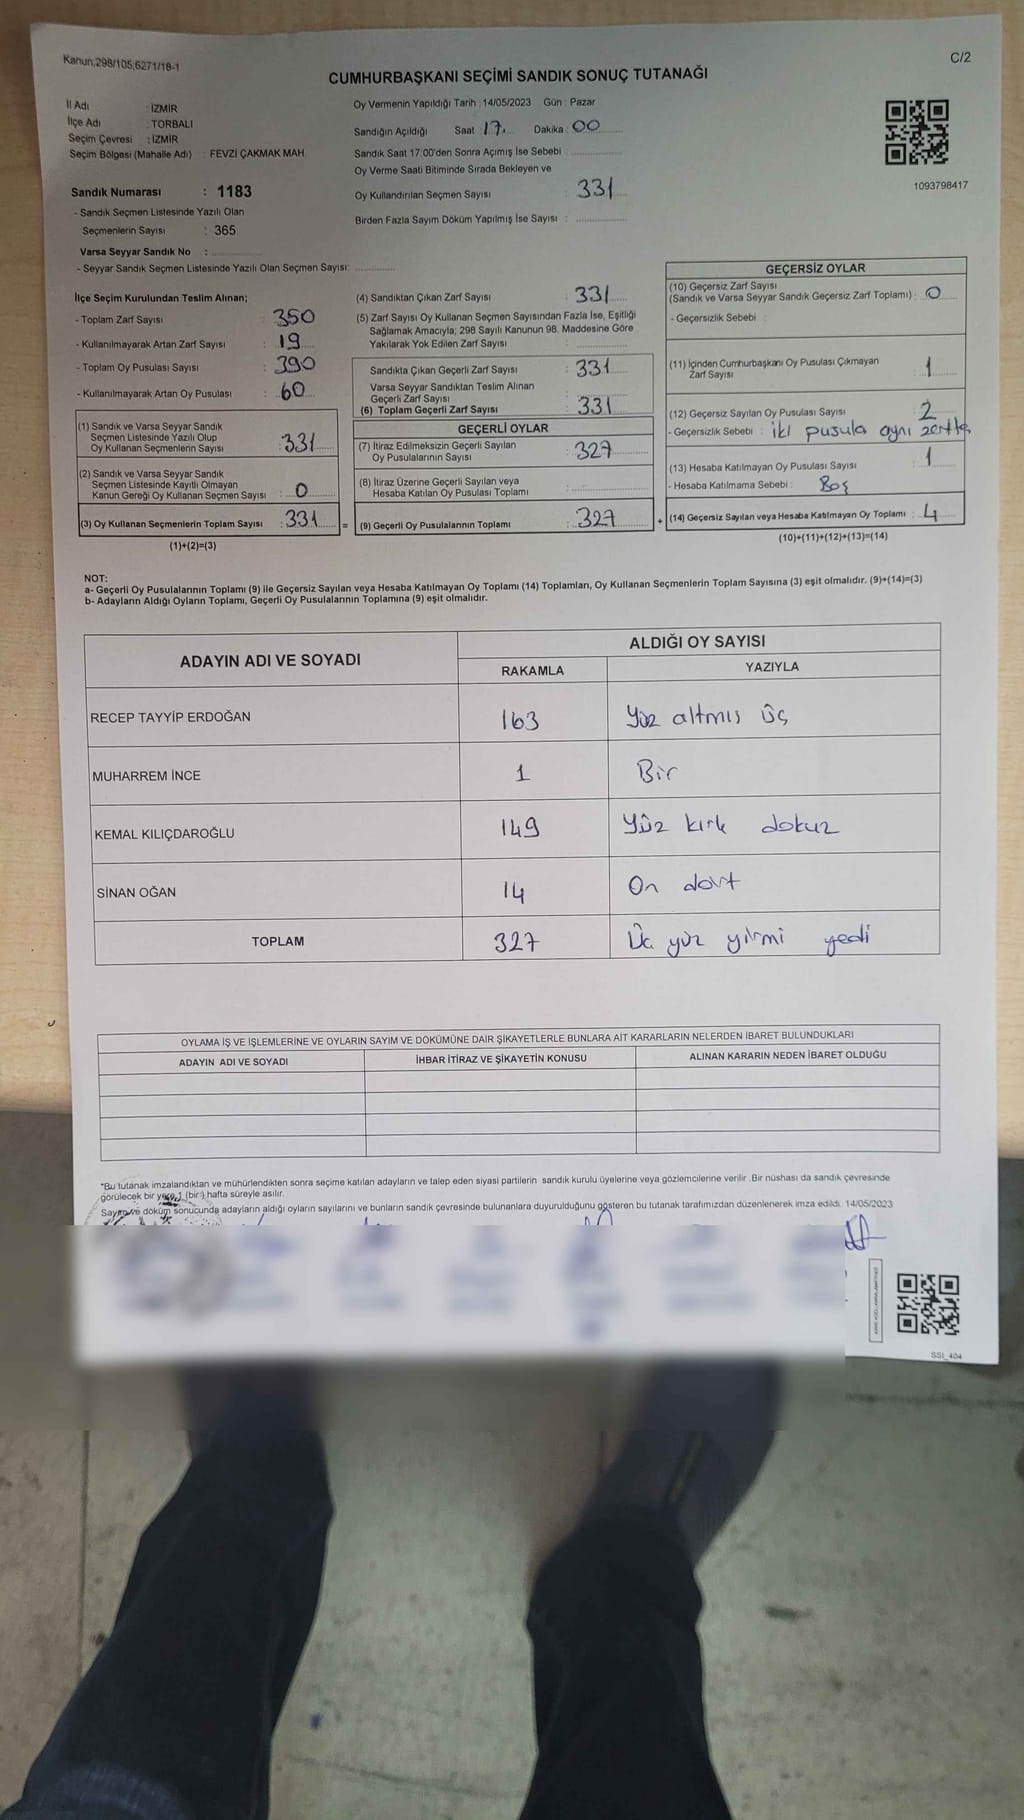 Kanun;298/105,6271/18-1
C/2
CUMHURBAŞKANI SEÇİMİ SANDIK SONUÇ TUTANAĞI
İl Adı : İZMİR
İlçe Adı : TORBALI
Seçim Çevresi : İZMİR
Seçim Bölgesi (Mahalle Adı) : FEVZİ ÇAKMAK MAH.
Sandık Numarası : 1183
- Sandık Seçmen Listesinde Yazılı Olan
Seçmenlerin Sayısı : 365
Varsa Seyyar Sandık No :
- Seyyar Sandık Seçmen Listesinde Yazılı Olan Seçmen Sayısı:
Oy Vermenin Yapıldığı Tarih : 14/05/2023 Gün : Pazar
Sandığın Açıldığı Saat : 17. Dakika : 00
Sandık Saat 17:00'den Sonra Açımış İse Sebebi :
Oy Verme Saati Bitiminde Sırada Bekleyen ve
Oy Kullandırılan Seçmen Sayısı : 331
Birden Fazla Sayım Döküm Yapılmış İse Sayısı :
1093798417
İlçe Seçim Kurulundan Teslim Alınan;
- Toplam Zarf Sayısı : 350
- Kullanılmayarak Artan Zarf Sayısı : 19
- Toplam Oy Pusulası Sayısı : 390
- Kullanılmayarak Artan Oy Pusulası : 60
(1) Sandık ve Varsa Seyyar Sandık
Seçmen Listesinde Yazılı Olup
Oy Kullanan Seçmenlerin Sayısı : 331
(2) Sandık ve Varsa Seyyar Sandık
Seçmen Listesinde Kayıtlı Olmayan
Kanun Gereği Oy Kullanan Seçmen Sayısı : 0
(3) Oy Kullanan Seçmenlerin Toplam Sayısı : 331 =
(1)+(2)=(3)
(4) Sandıktan Çıkan Zarf Sayısı : 331
(5) Zarf Sayısı Oy Kullanan Seçmen Sayısından Fazla İse, Eşitliği
Sağlamak Amacıyla; 298 Sayılı Kanunun 98. Maddesine Göre
Yakılarak Yok Edilen Zarf Sayısı :
Sandıkta Çıkan Geçerli Zarf Sayısı : 331
Varsa Seyyar Sandıktan Teslim Alınan
Geçerli Zarf Sayısı :
(6) Toplam Geçerli Zarf Sayısı : 331
GEÇERLİ OYLAR
(7) İtiraz Edilmeksizin Geçerli Sayılan
Oy Pusulalarının Sayısı : 327
(8) İtiraz Üzerine Geçerli Sayılan veya
Hesaba Katılan Oy Pusulası Toplamı :
(9) Geçerli Oy Pusulalarının Toplamı : 327 +
GEÇERSİZ OYLAR
(10) Geçersiz Zarf Sayısı
(Sandık ve Varsa Seyyar Sandık Geçersiz Zarf Toplamı) : 0
- Geçersizlik Sebebi :
(11) İçinden Cumhurbaşkanı Oy Pusulası Çıkmayan
Zarf Sayısı : 1
(12) Geçersiz Sayılan Oy Pusulası Sayısı : 2
- Geçersizlik Sebebi : iki pusula aynı zarfta
(13) Hesaba Katılmayan Oy Pusulası Sayısı : 1
- Hesaba Katılmama Sebebi : Boş
(14) Geçersiz Sayılan veya Hesaba Katılmayan Oy Toplamı : 4
(10)+(11)+(12)+(13)=(14)
NOT:
a- Geçerli Oy Pusulalarının Toplamı (9) ile Geçersiz Sayılan veya Hesaba Katılmayan Oy Toplamı (14) Toplamları, Oy Kullanan Seçmenlerin Toplam Sayısına (3) eşit olmalıdır. (9)+(14)=(3)
b- Adayların Aldığı Oyların Toplamı, Geçerli Oy Pusulalarının Toplamına (9) eşit olmalıdır.
ADAYIN ADI VE SOYADI
ALDIĞI OY SAYISI
RAKAMLA YAZIYLA
RECEP TAYYİP ERDOĞAN 163 Yüz altmıs üç
MUHARREM İNCE 1 Bir
KEMAL KILIÇDAROĞLU 149 Yüz kırk dokuz
SİNAN OĞAN 14 On dört
TOPLAM 327 Üç yüz yirmi yedi
OYLAMA İŞ VE İŞLEMLERİNE VE OYLARIN SAYIM VE DÖKÜMÜNE DAİR ŞİKAYETLERLE BUNLARA AİT KARARLARIN NELERDEN İBARET BULUNDUKLARI
ADAYIN ADI VE SOYADI İHBAR İTİRAZ VE ŞİKAYETİN KONUSU ALINAN KARARIN NEDEN İBARET OLDUĞU
*Bu tutanak imzalandıktan ve mühürlendikten sonra seçime katılan adayların ve talep eden siyasi partilerin sandık kurulu üyelerine veya gözlemcilerine verilir .Bir nüshası da sandık çevresinde
görülecek bir yere 1 (bir ) hafta süreyle asılır.
Sayım ve döküm sonucunda adayların aldığı oyların sayılarını ve bunların sandık çevresinde bulunanlara duyurulduğunu gösteren bu tutanak tarafımızdan düzenlenerek imza edildi. 14/05/2023
SSI_404